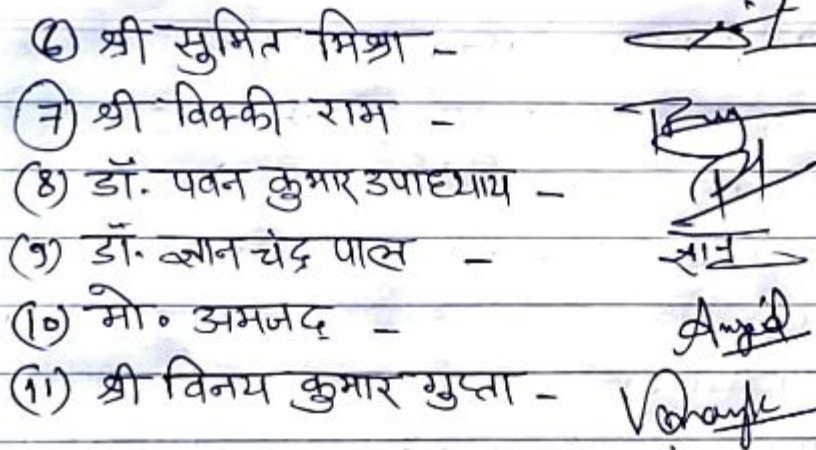 (6) श्री सुमित मिश्रा -
(7) श्री विक्की राम -
(8) डॉ. पवन कुमार उपाध्याय -
(9) डॉ. ज्ञान चंद्र पाल - ज्ञान
(10) मो. अमजद - Amjad
(11) श्री विनय कुमार गुप्ता -